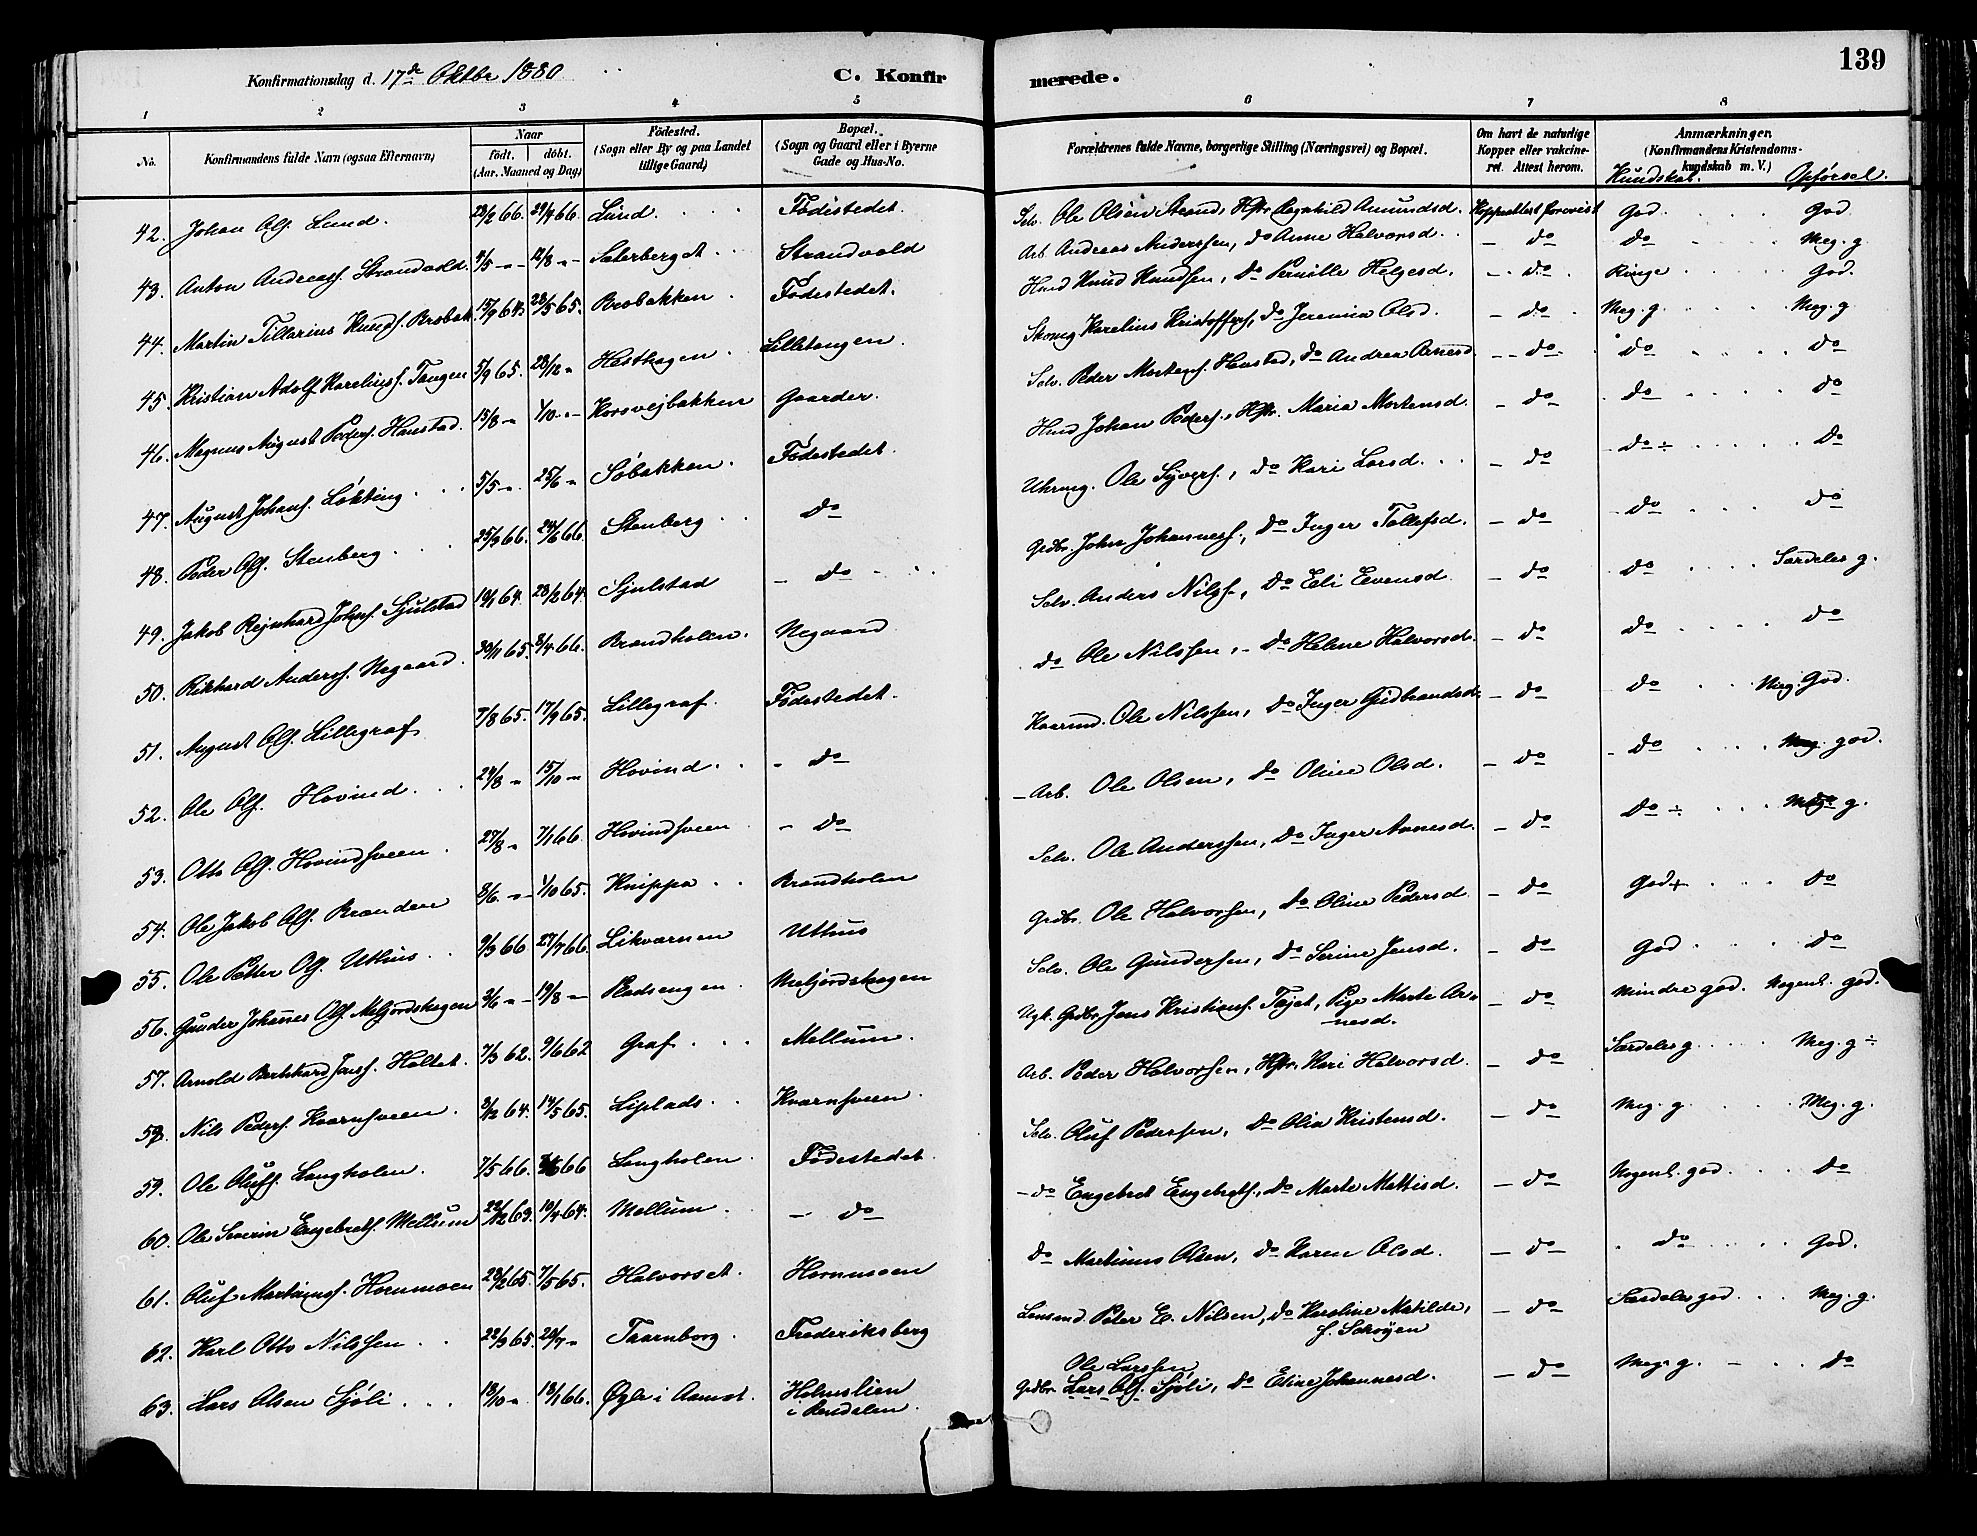 139
Konfirmationsdag d. 17de Oktbr 1880
C. Konfirmerede.
1 2 3 4 5 6 7 8
No. Konfirmandens fulde Navn (ogsaa Efternavn) Naar født. døbt. (Aar, Maaned og Dag) Fødested. (Sogn eller By og paa Landet tillige Gaard) Bopæl. (Sogn og Gaard eller i Byerne Gade og Hus-No. Forældrenes fulde Navne, borgerlige Stilling (Næringsvei) og Bopæl. Om havt de naturlige Kopper eller vakcineret. Attest herom. Anmærkninger. (Konfirmandens Kristendomskundskab m. V.) Kundskab. Opførsel.
42. Johan Ols. Lund. 23/2 66. 29/4 66. Lund Fødestedet. Selv. Ole Olsen Hstr Ragnhild Amundsd. Koppattest forevist God God
43. Anton Andreass. Strandvold. 4/5 - 12/8 - Sæterberget Strandvold Arb. Andreas Anderssen, do Anne Halvorsd. - do do Meg. g.
44. Martin Tillarius Knuds. Brobak. 15/9 64. 28/5 65. Brobakken Fødestedet. Hmd Knud Knudsen, do Pernille Helgesd. - do Ringe God.
45. Kristian Adolf Kareliuss. Tangen 5/9 65. 28/12 " Hesthagen Lilletangen Skomg Karelius Kristoffers, do Jeremia Olsd. - do Meg. g Meg. g
46. Magnus August Peders. Hanstad. 15/8 " 1/10 - Korsvejbakken Gaarder. Selv. Peder Mortens. Hanstad, do Andrea Arnesd. - do do do
47. August Johans. Løkting 5/5 - 25/6 " Søbakken. Fødestedet. Hmd Johan Peders., Hstr. Maria Mortensd. - do do do
48. Peder Ols. Stenberg 25/3 66. 24/6 66. Stenberg do Uhrmg. Ole Syvers., do Kari Larsd. - do do ÷ do
49. Jakob Rejnhard Johns. Sjulstad 64. 28/2 64. Sjulstad - do - Grdbr. John Johanness., do Inger Tollefsd. - do do do
50. Rikhard Anderss. Negaard. 30/11 65. 8/4 66. Brandholen. Negaard Selv. Anders Nilss., do Eli Evensd. - do do Særdeles g.
51. August Ols. Lillegraf 7/8 65. 17/9 65. Lillegraf Fødestedet. do Ole Nilssen, - do Helene Halvorsd. - do do do
52. Ole Ols. Hovind 24/8 - 15/10 - Hovind - do Ole Nilssen, do Inger Gudbrandsd. - do do Meg. God.
53. Otto Ols. Hovindsveen 27/8 " 7/1 66. Hovindsveen - do - Arb. Ole Olsen, do Oline Olsd. - do - do god.
54. Ole Jakob Ols. Branden 8/6. - 1/10 65. Knippa Brandholen Selv. Ole Anderssen, do Inger Arnesd. - do do ÷ Meg. g.
55. Ole Petter Ols. Uthus 9/3 66 27/7 66. Likværnen Uthus Grdbr. Ole Halvorsen, do Oline Pedersd. - do God+ do
56. Gunder Johannes Ols. Meljordshagen 3/6 - 19/8 - Pladsengen Meljordshagen Selv. Ole Gundersen, do Serine Jensd. - do God do
57. Arnold Bertshard Jenss. Holtet. 7/3 62. 9/6 62 Graf Mellum. Ugk. Grdbr Jens Kristians. Tajet, Pige Marte Arnesd. - do Mindre god. Nogenl. god.
58. Nils Peders. Kvarnsveen. 8/12 64. 14/5 65. Liplads Kvarnsveen Arb. Peder Halvorsen, Hstr. Kari Halvorsd. - do Særdeles g. Meg. g ÷
59. Ole Olufs. Langholen. 7/5 66. 66 Langholen Fødestedet. Selv. Oluf Pedersen, do Olia Kristensd. - do Meg. g. Meg. g.
60. Ole Severin Engebrets. Mellum 22/12 63. 10/4 64. Mellum - do - do Engebret Engebrets., do Marte Mattisd. - do Nogenl. god do
61. Oluf Martinuss. Hornmoen 28/2 65. 7/5 65. Halvorset. Hornmoen do Martinus Olsen, do Karen Olsd. - do - do God.
62. Karl Otto Nilssen 22/3 65. 20/7 " Taarnborg. Frederiksberg Lensmd Peter E. Nilsen, do Karoline Matilde, f. Schøyen - do Særdeles god. Meg. g.
63. Lars Olsen Sjøli 13/10 " 18/1 66. Øgle i Aamot. Holmslien i Rendalen. Grdbr. Ole Larssen Lars Ols. Sjøli, do Eline Johannesd. - do Meg. g. do